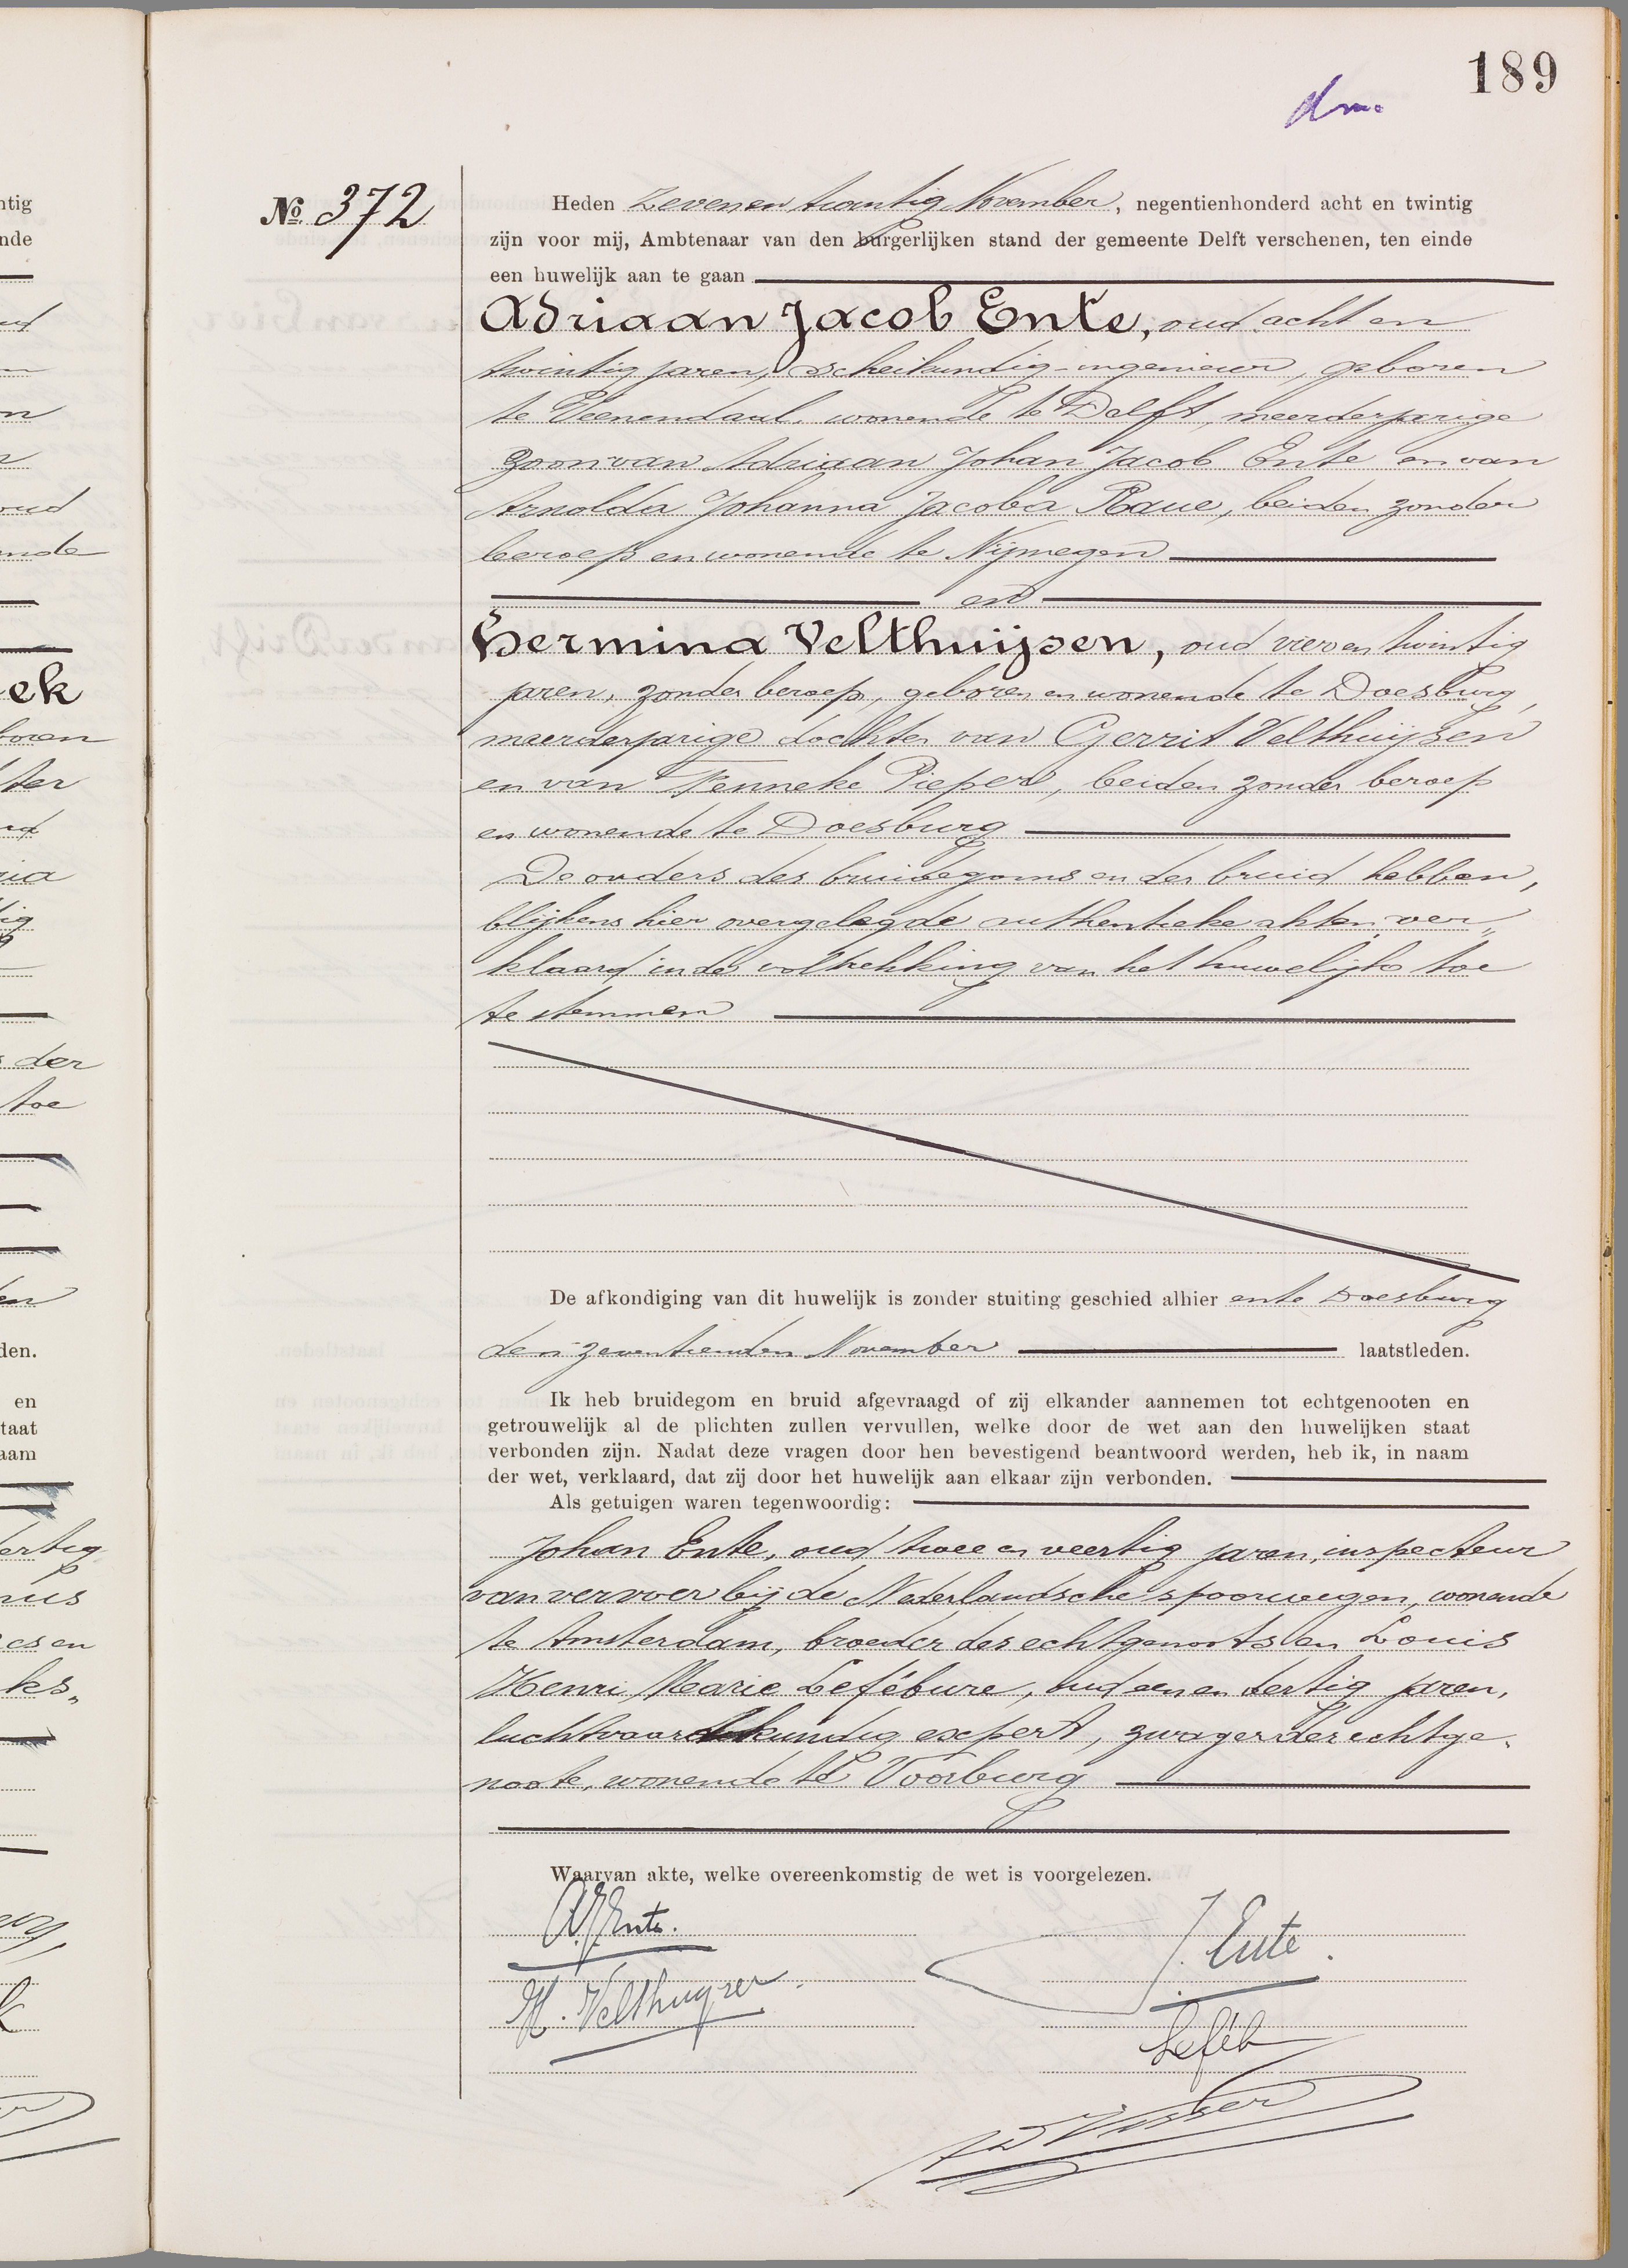 189
dm.
No. 372
Heden zeven en twintig November, negentienhonderd acht en twintig
zijn voor mij, Ambtenaar van den burgerlijken stand der gemeente Delft verschenen, ten einde
een huwelijk aan te gaan
Adriaan Jacob Ente, oud acht en
twintig jaren, scheikundig-ingenieur, geboren
te Veenendaal, wonende te Delft, meerderjarige
zoon van Adriaan Johan Jacob Ente en van
Arnolda Johanna Jacoba Raue, beiden zonder
beroep en wonende te Nijmegen
en
Hermina Velthuijsen, oud vier en twintig
jaren, zonder beroep, geboren en wonende te Doesburg,
meerderjarige dochter van Gerrit Velthuijsen
en van Fenneke Pieper, beiden zonder beroep
en wonende te Doesburg
De ouders des bruidegoms en der bruid hebben,
blijkens hier overgelegde authentieke akten, ver„
klaard in de voltrekking van het huwelijk toe
te stemmen
De afkondiging van dit huwelijk is zonder stuiting geschied alhier en te Doesburg
den zeventienden November laatstleden.
Ik heb bruidegom en bruid afgevraagd of zij elkander aannemen tot echtgenooten en
getrouwelijk al de plichten zullen vervullen, welke door de wet aan den huwelijken staat
verbonden zijn. Nadat deze vragen door hen bevestigend beantwoord werden, heb ik, in naam
der wet, verklaard, dat zij door het huwelijk aan elkaar zijn verbonden.
Als getuigen waren tegenwoordig:
Johan Ente, oud twee en veertig jaren, inspecteur
van vervoer bij de Nederlandsche spoorwegen, wonende
te Amsterdam, broeder des echtgenoots en Louis
Henri Marie Lefébure, oud een en dertig jaren,
luchtvaartkundig expert, zwager der echtge-
noote, wonende te Voorburg
Waarvan akte, welke overeenkomstig de wet is voorgelezen.
A.J. Ente.
J. Ente.
H. Velthuysen.
Leféb
Visser